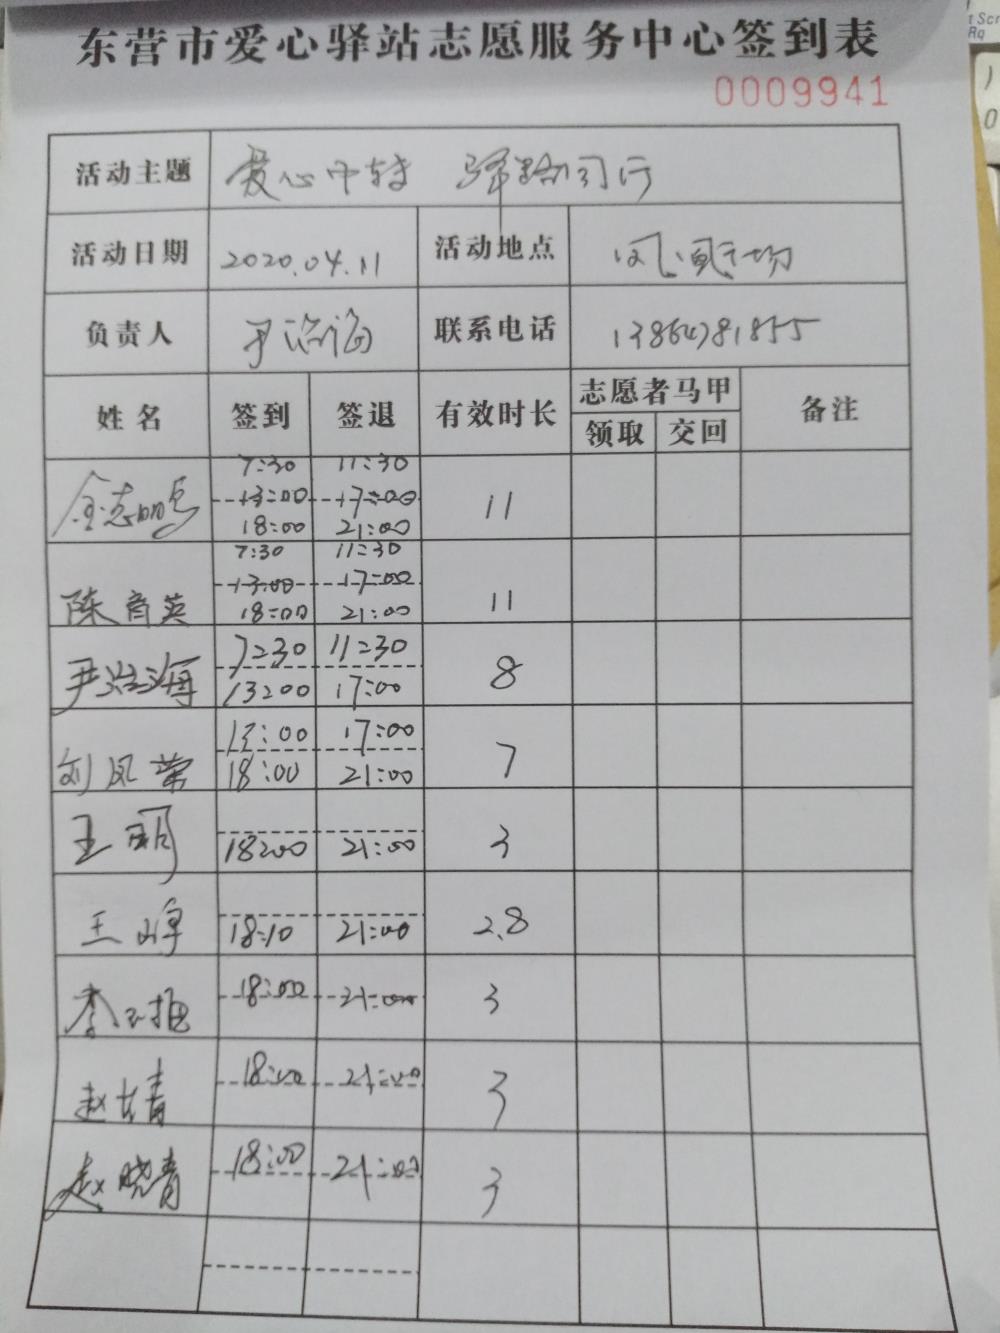 东营市爱心驿站志愿服务中心签到表
0009941
活动主题 爱心中转 驿路同行
活动日期 2020.04.11 活动地点 凤凰广场
负责人 尹治海 联系电话 13864781855
姓名 签到 签退 有效时长 志愿者马甲 备注
领取 交回
7:30 11:30
金志明 13:00 17:00 11
18:00 21:00
7:30 11:30
陈育英 13:00 17:00 11
18:00 21:00
尹治海 7:30 11:30 8
13:00 17:00
刘凤荣 13:00 17:00 7
18:00 21:00
王明 18:00 21:00 3
王峰 18:10 21:00 2.8
李玉 18:00 21:00 3
赵长青 18:00 21:00 3
赵晓青 18:00 21:00 3